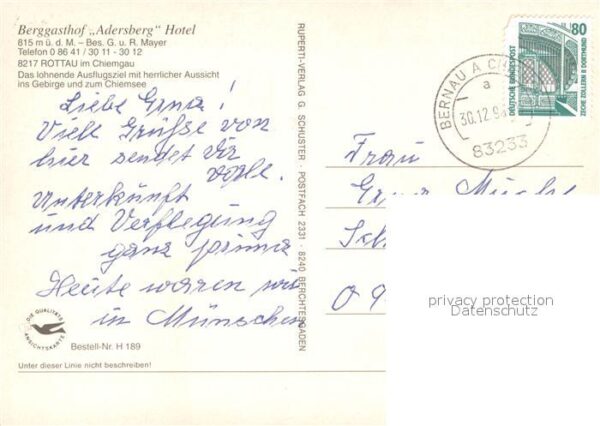 Berggasthof „Adersberg" Hotel
815 m ü. d. M. – Bes. G. u. R. Mayer
Telefon 0 86 41 / 30 11 - 30 12
8217 ROTTAU im Chiemgau
Das lohnende Ausflugsziel mit herrlicher Aussicht
ins Gebirge und zum Chiemsee
Liebe Erna!
Viele Grüße von
hier sendet Dir
Unterkunft
und Verflegung
ganz prima
Heute waren wir
in München
DIE QUALITÄTS
ANSICHTSKARTE
Bestell-Nr. H 189
Unter dieser Linie nicht beschreiben!
RUPERTI-VERLAG G. SCHUSTER · POSTFACH 2331 · 8240 BERCHTESGADEN
BERNAU A C
a
30.12.9
83233
80
DEUTSCHE BUNDESPOST
ZECHE ZOLLERN II DORTMUND
Frau
Erna
Sch
09
privacy protection
Datenschutz